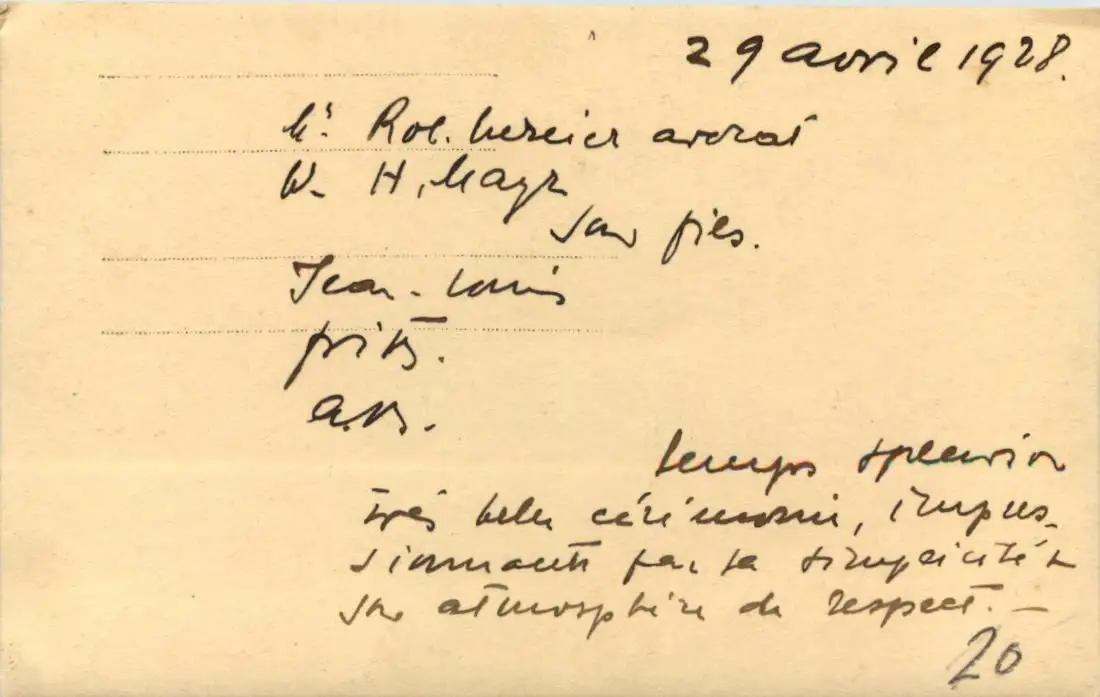 29 avril 1928.
Mr. Rob. Mercier avocat
W. H. Mayr
son fils.
Jean-Louis
Fritz.
a.B.
temps splendide
très belle cérémonie, impres-
sionnante par sa simplicité &
son atmosphère de respect. —
20